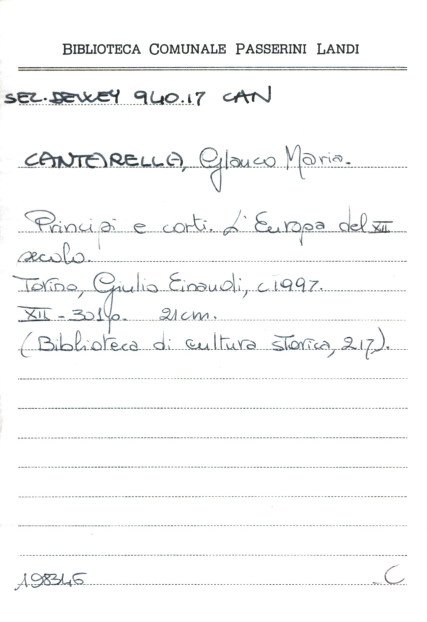 BIBLIOTECA COMUNALE PASSERINI LANDI
SEZ. DEWEY 940.17 CAN
CANTARELLA, Glauco Maria.
Principi e corti. L'Europa del XII
secolo.
Torino, Giulio Einaudi, c1997.
XII - 301p. 21cm.
(Biblioteca di cultura storica, 217).
198346
C